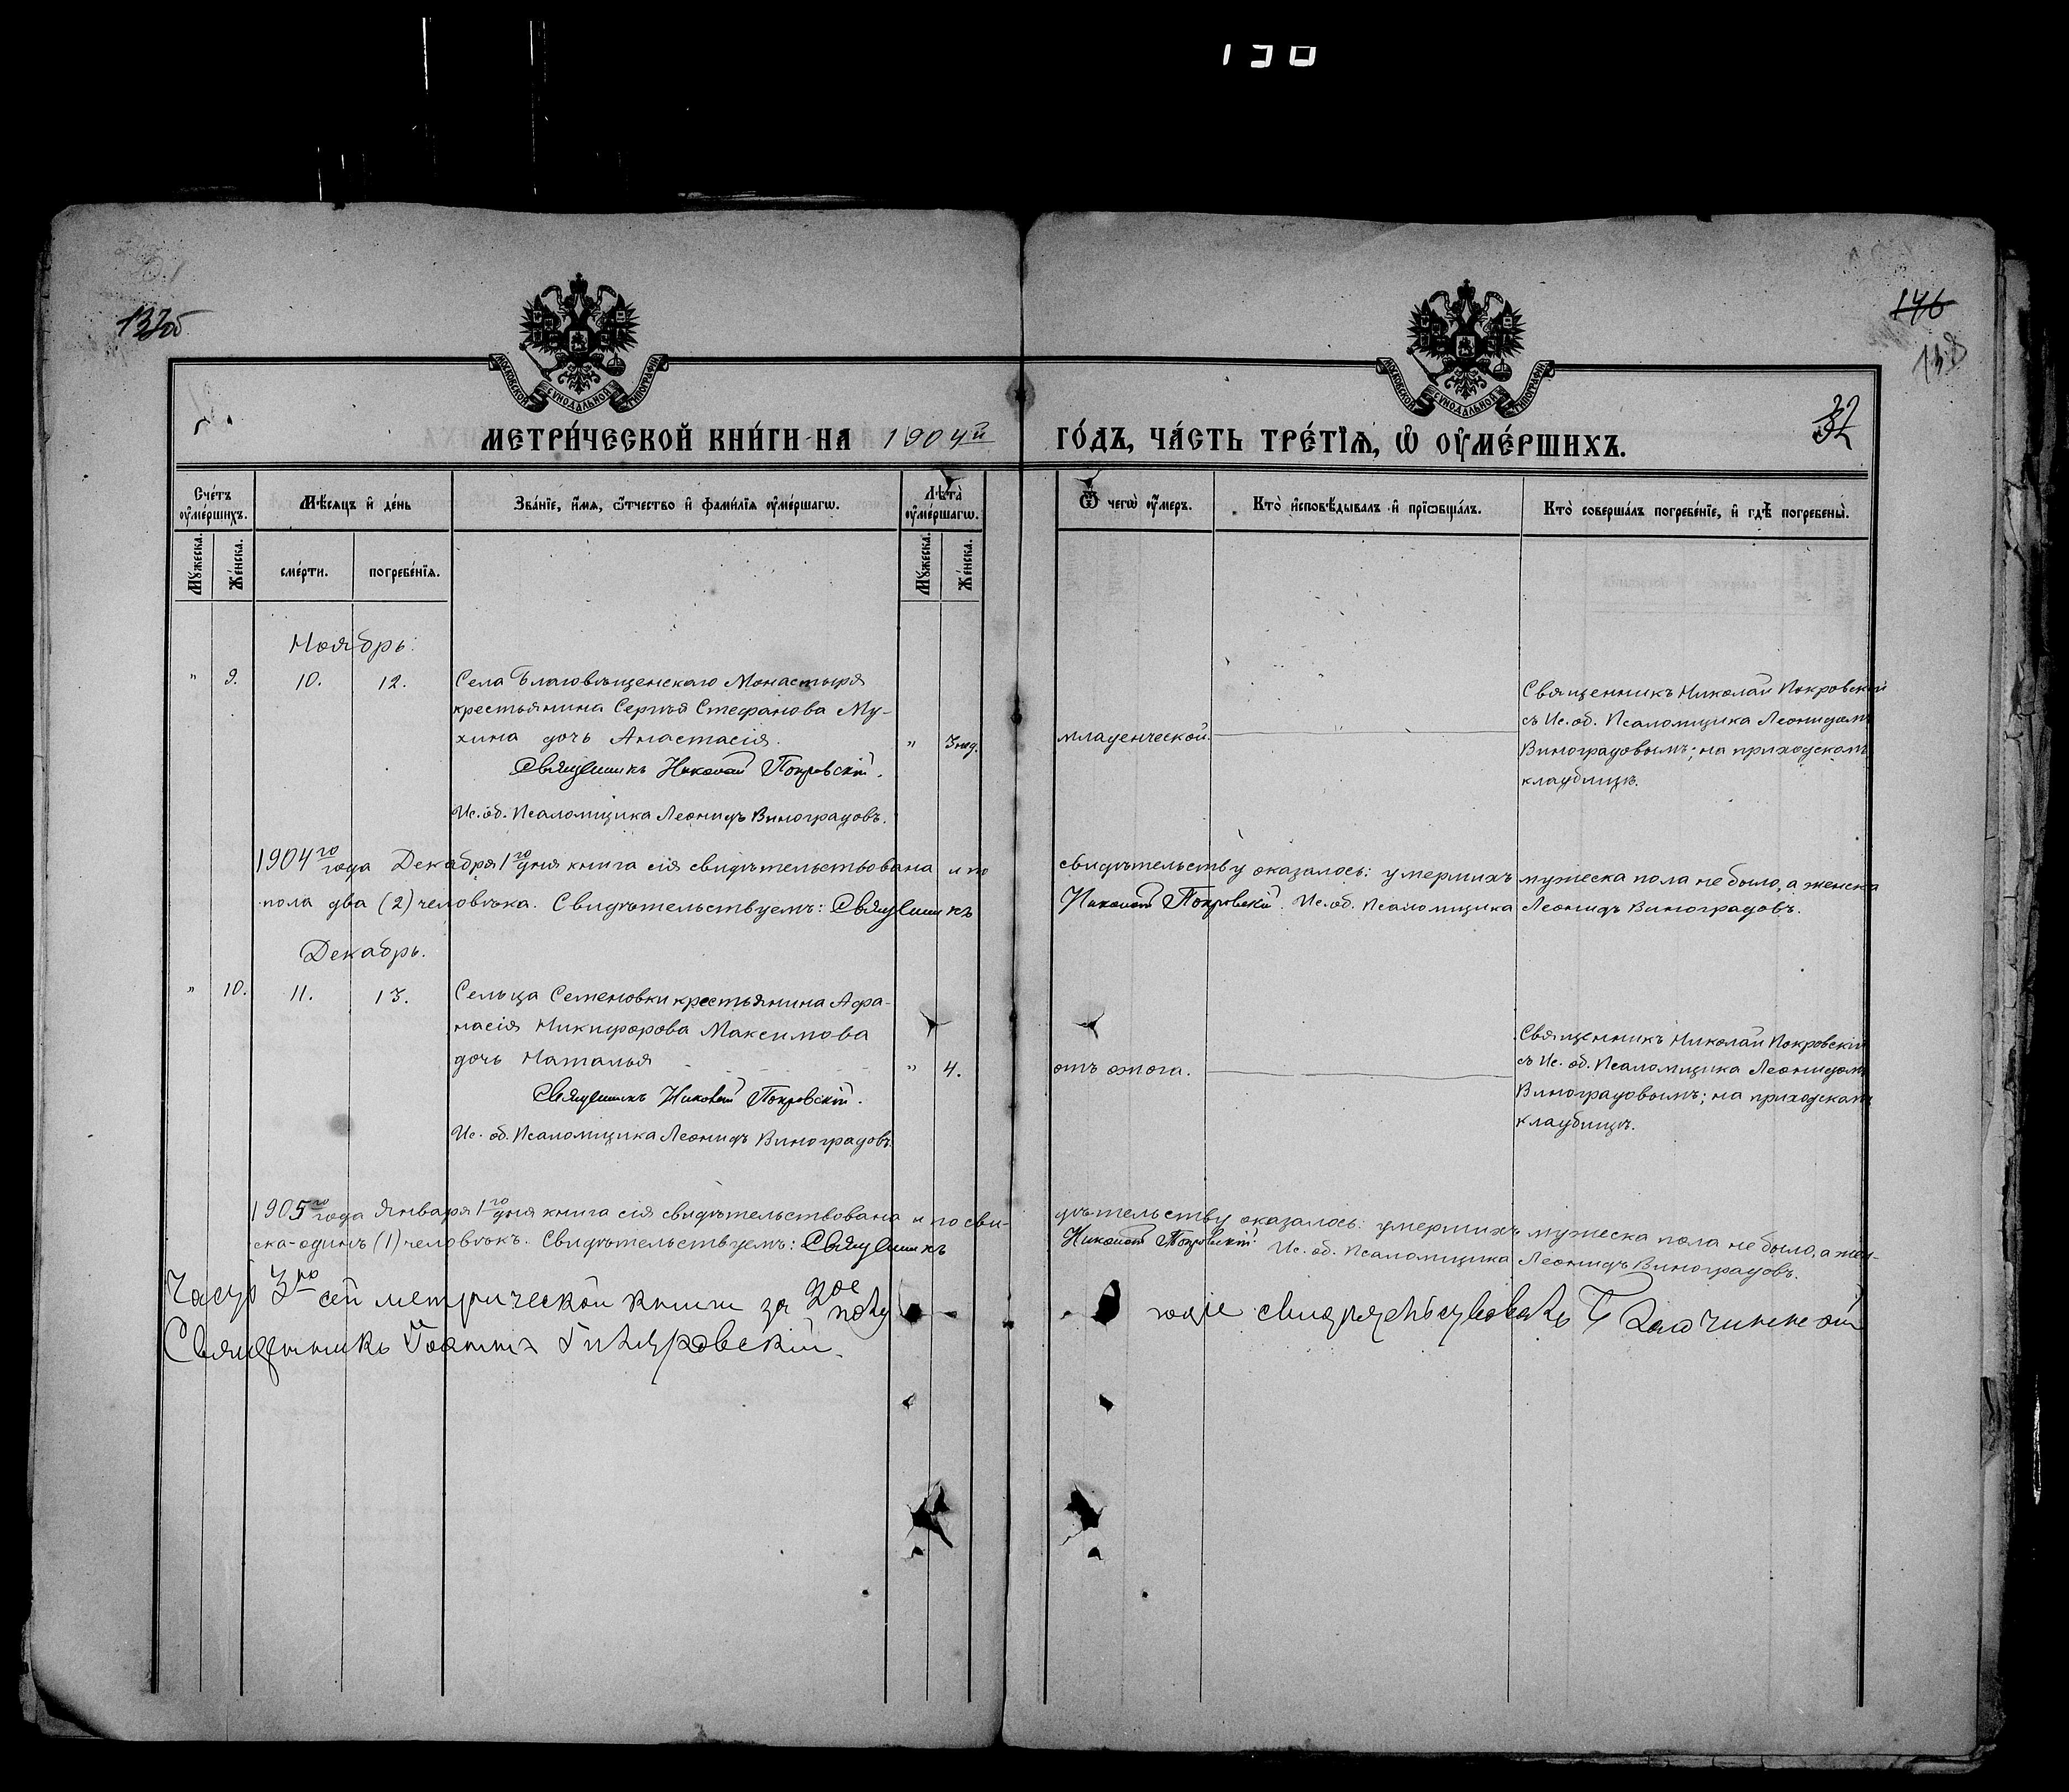 130
137об
146
138
32
МОСКОВСКОЙ СѴНОДАЛЬНОЙ ТИПОГРАФІИ
МОСКОВСКОЙ СѴНОДАЛЬНОЙ ТИПОГРАФІИ
МЕТРИ́ЧЕСКОЙ КНИ́ГИ НА 1904й ГО́ДЪ, ЧА́СТЬ ТРЕ́ТІѦ, Ѡ҆ ОУ҆МЕ́РШИХЪ.
Сче́тъ оу҆ме́ршихъ.
Мѣ́сѧцъ и҆ де́нь
Зва́нїе, и҆́мѧ, ѻ҆́тчество и҆ фами́лїѧ оу҆ме́ршагѡ.
Лѣ́та оу҆ме́ршагѡ.
Ѿ чегѡ̀ оу҆́меръ.
Кто̀ и҆сповѣ́дывалъ и҆ прїѡбща́лъ.
Кто̀ соверша́лъ погребе́нїе, и҆ гдѣ̀ погребены̀.
Мꙋ́жеска.
Же́нска.
сме́рти.
погребе́нїѧ.
Мꙋ́жеска.
Же́нска.
Ноябрь.
" 9. 10. 12. Села Благовѣщенскаго Монастыря
крестьянина Сергѣя Стефанова Му-
хина дочь Анастасія. " 3 нед. младенческой.
Священникъ Николай Покровскій.
Ис. об. Псаломщика Леонидъ Виноградовъ.
Священникъ Николай Покровскій
съ Ис. об. Псаломщика Леонидомъ
Виноградовымъ; на приходскомъ
кладбищѣ.
1904го года Декабря 1го дня книга сія свидѣтельствована и по свидѣтельству оказалось: умершихъ мужеска пола не было, а женска
пола два (2) человѣка. Свидѣтельствуемъ: Священникъ Николай Покровскій. Ис. об. Псаломщика Леонидъ Виноградовъ.
Декабрь.
" 10. 11. 13. Сельца Семеновки крестьянина Афа-
насія Никифорова Максимова
дочь Наталья " 4. отъ ожога.
Священникъ Николай Покровскій.
Ис. об. Псаломщика Леонидъ Виноградовъ.
Священникъ Николай Покровскій
съ Ис. об. Псаломщика Леонидомъ
Виноградовымъ; на приходскомъ
кладбищѣ.
1905го года Января 1го дня книга сія свидѣтельствована и по сви-дѣтельству оказалось: умершихъ мужеска пола не было, а жен-
ска-одинъ (1) человѣкъ. Свидѣтельствуемъ: Священникъ Николай Покровскій. Ис. об. Псаломщика Леонидъ Виноградовъ.
Часть 3ю сей метрической книги за 2ое полу - - годіе свидѣтельствовалъ Благочинный
Священникъ Іоаннъ